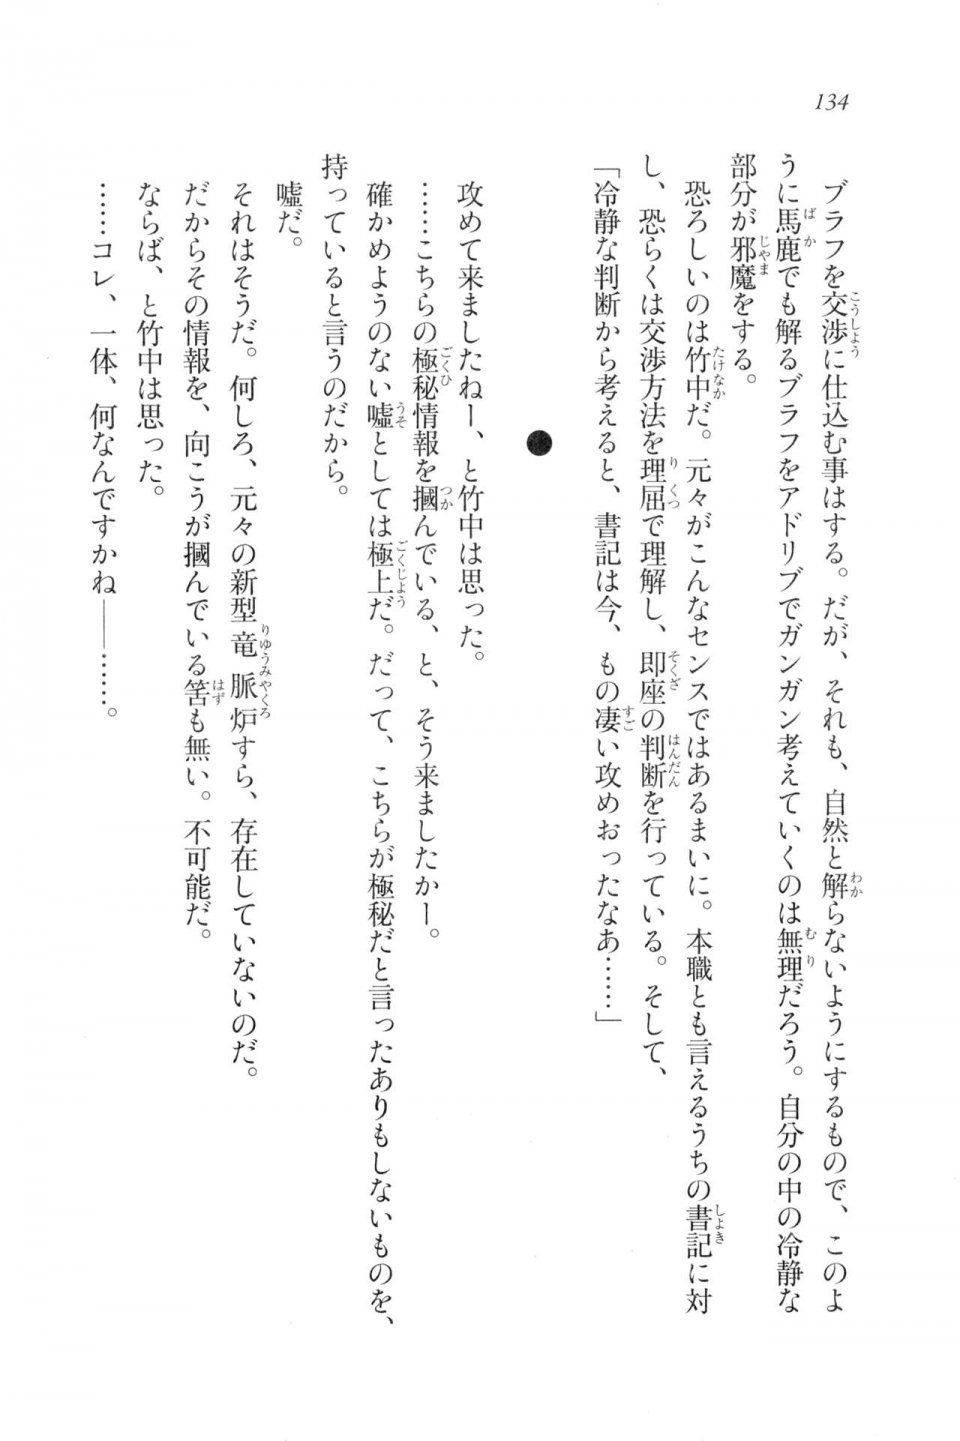 134
ブラフを交渉に仕込む事はする。だが、それも、自然と解らないようにするもので、このよ
うに馬鹿でも解るブラフをアドリブでガンガン考えていくのは無理だろう。自分の中の冷静な
部分が邪魔をする。
恐ろしいのは竹中だ。元々がこんなセンスではあるまいに。本職とも言えるうちの書記に対
し、恐らくは交渉方法を理屈で理解し、即座の判断を行っている。そして、
「冷静な判断から考えると、書記は今、もの凄い攻めおったなあ……」
●
攻めて来ましたねー、と竹中は思った。
……こちらの極秘情報を摑んでいる、と、そう来ましたかー。
確かめようのない嘘としては極上だ。だって、こちらが極秘だと言ったありもしないものを、
持っていると言うのだから。
嘘だ。
それはそうだ。何しろ、元々の新型竜脈炉すら、存在していないのだ。
だからその情報を、向こうが摑んでいる筈も無い。不可能だ。
ならば、と竹中は思った。
……コレ、一体、何なんですかね――……。